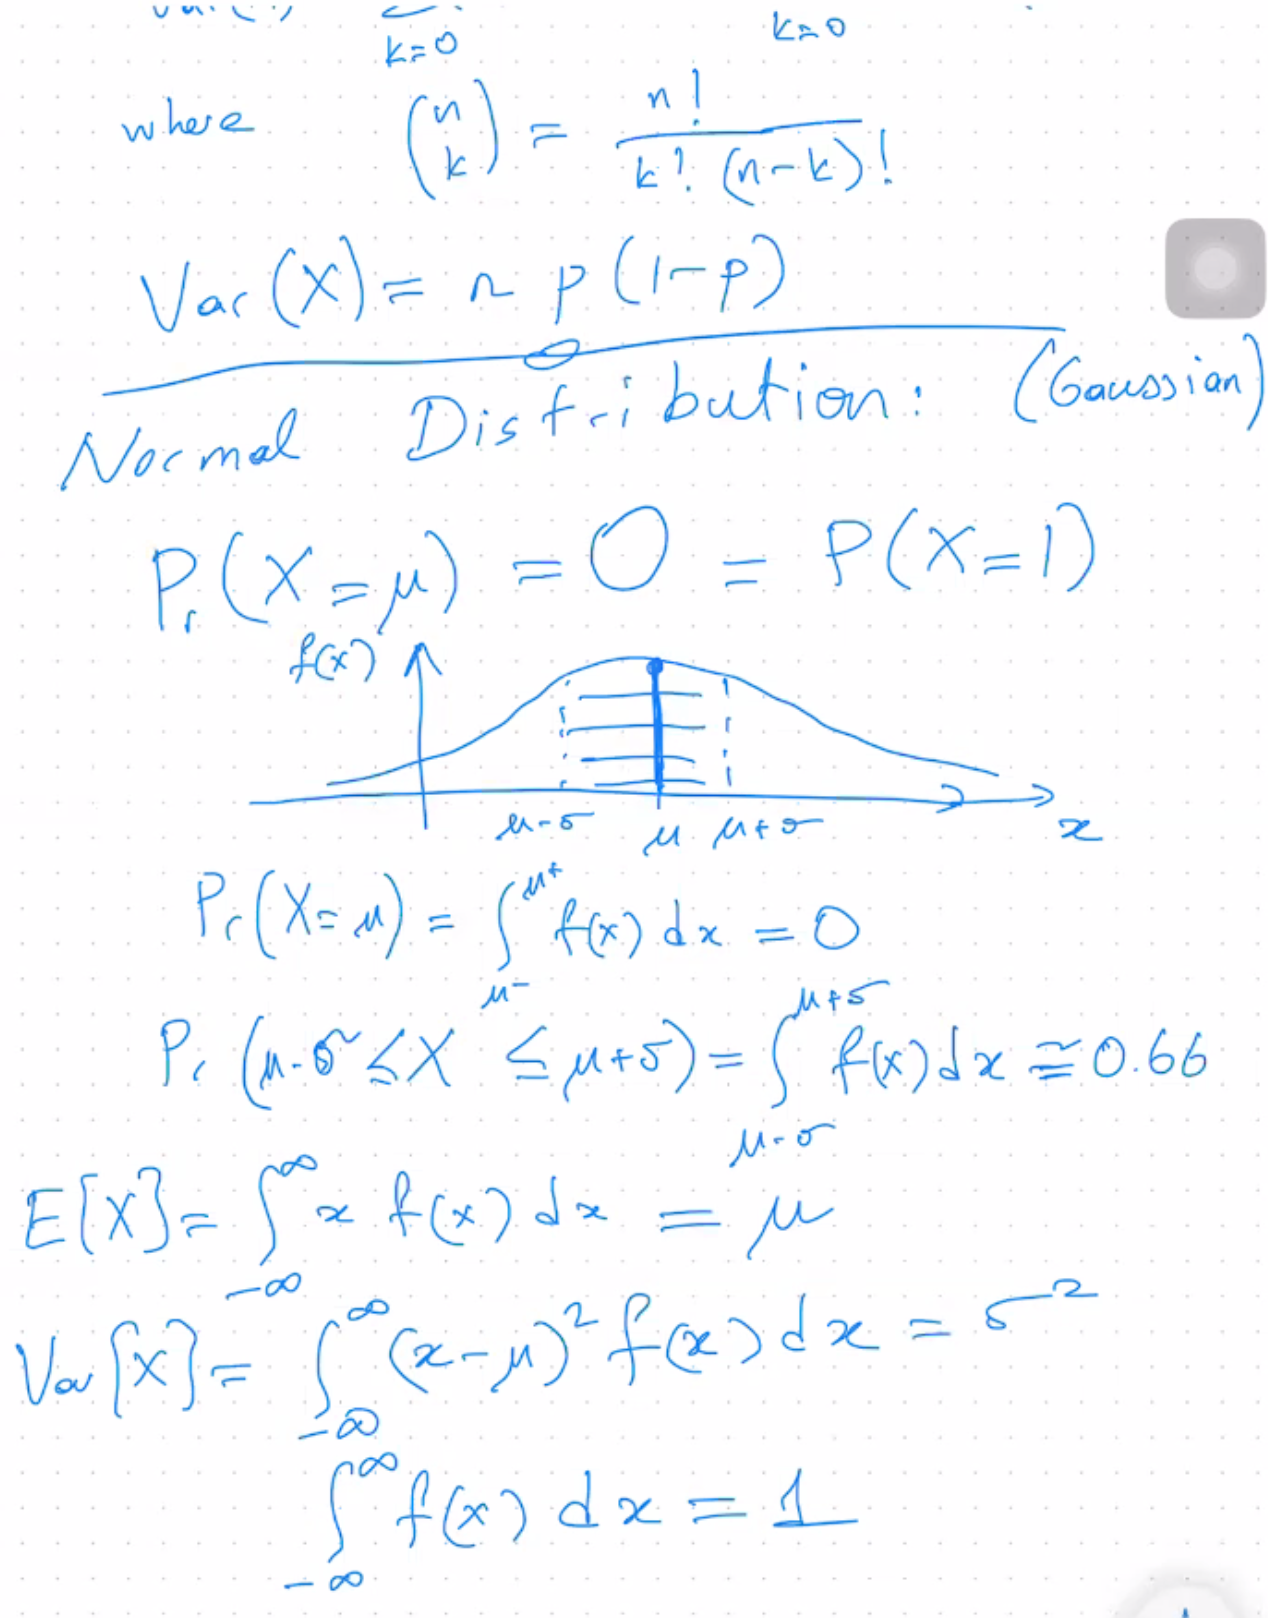 k=0 k=0
where (n k) = n! / k! (n-k)!
Var(X) = n p (1-p)
Normal Distribution: (Gaussian)
Pr(X=μ) = 0 = P(X=1)
f(x)
μ-σ μ μ+σ x
Pr(X=μ) = ∫_{μ-}^{μ+} f(x) dx = 0
Pr(μ-σ ≤ X ≤ μ+σ) = ∫_{μ-σ}^{μ+σ} f(x) dx ≅ 0.66
E[X] = ∫_{-∞}^{∞} x f(x) dx = μ
Var[X] = ∫_{-∞}^{∞} (x-μ)² f(x) dx = σ²
∫_{-∞}^{∞} f(x) dx = 1